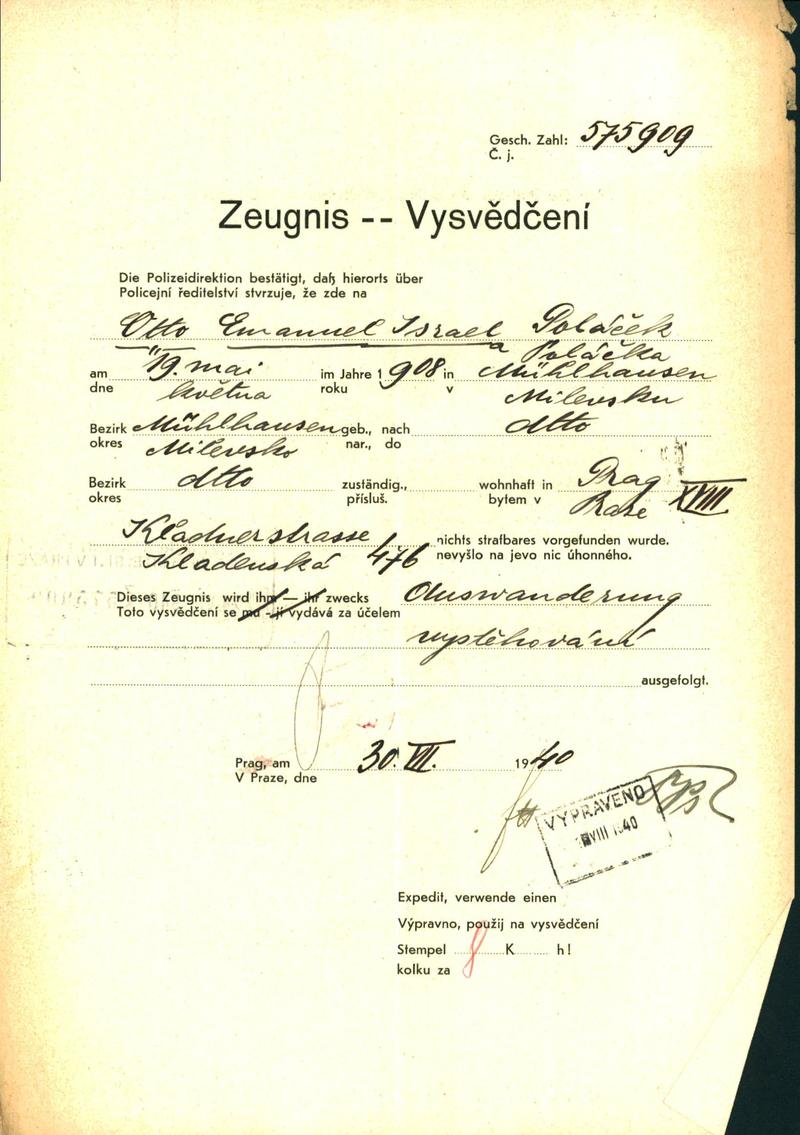 Gesch. Zahl: 575909
Č. j.
Zeugnis -- Vysvědčení
Die Polizeidirektion bestätigt, daß hierorts über
Policejní ředitelství stvrzuje, že zde na
Otto Emanuel Israel Poláček
a Poláčka
am 19. mai im Jahre 1908 in Mühlhausen
dne května roku v Milevsku
Bezirk Mühlhausen geb., nach dtto
okres Milevsko nar., do
Bezirk dtto zuständig., wohnhaft in Prag XVIII
okres přísluš. bytem v Praze
Kladnerstrasse nichts strafbares vorgefunden wurde.
Kladenská 476 nevyšlo na jevo nic úhonného.
Dieses Zeugnis wird ihm — ihr zwecks Auswanderung
Toto vysvědčení se mu - jí vydává za účelem
vystěhování
ausgefolgt.
Prag, am 30. VII. 1940
V Praze, dne
VYPRAVENO
VIII 1940
Expedit, verwende einen
Výpravno, použij na vysvědčení
Stempel 8 K h!
kolku za